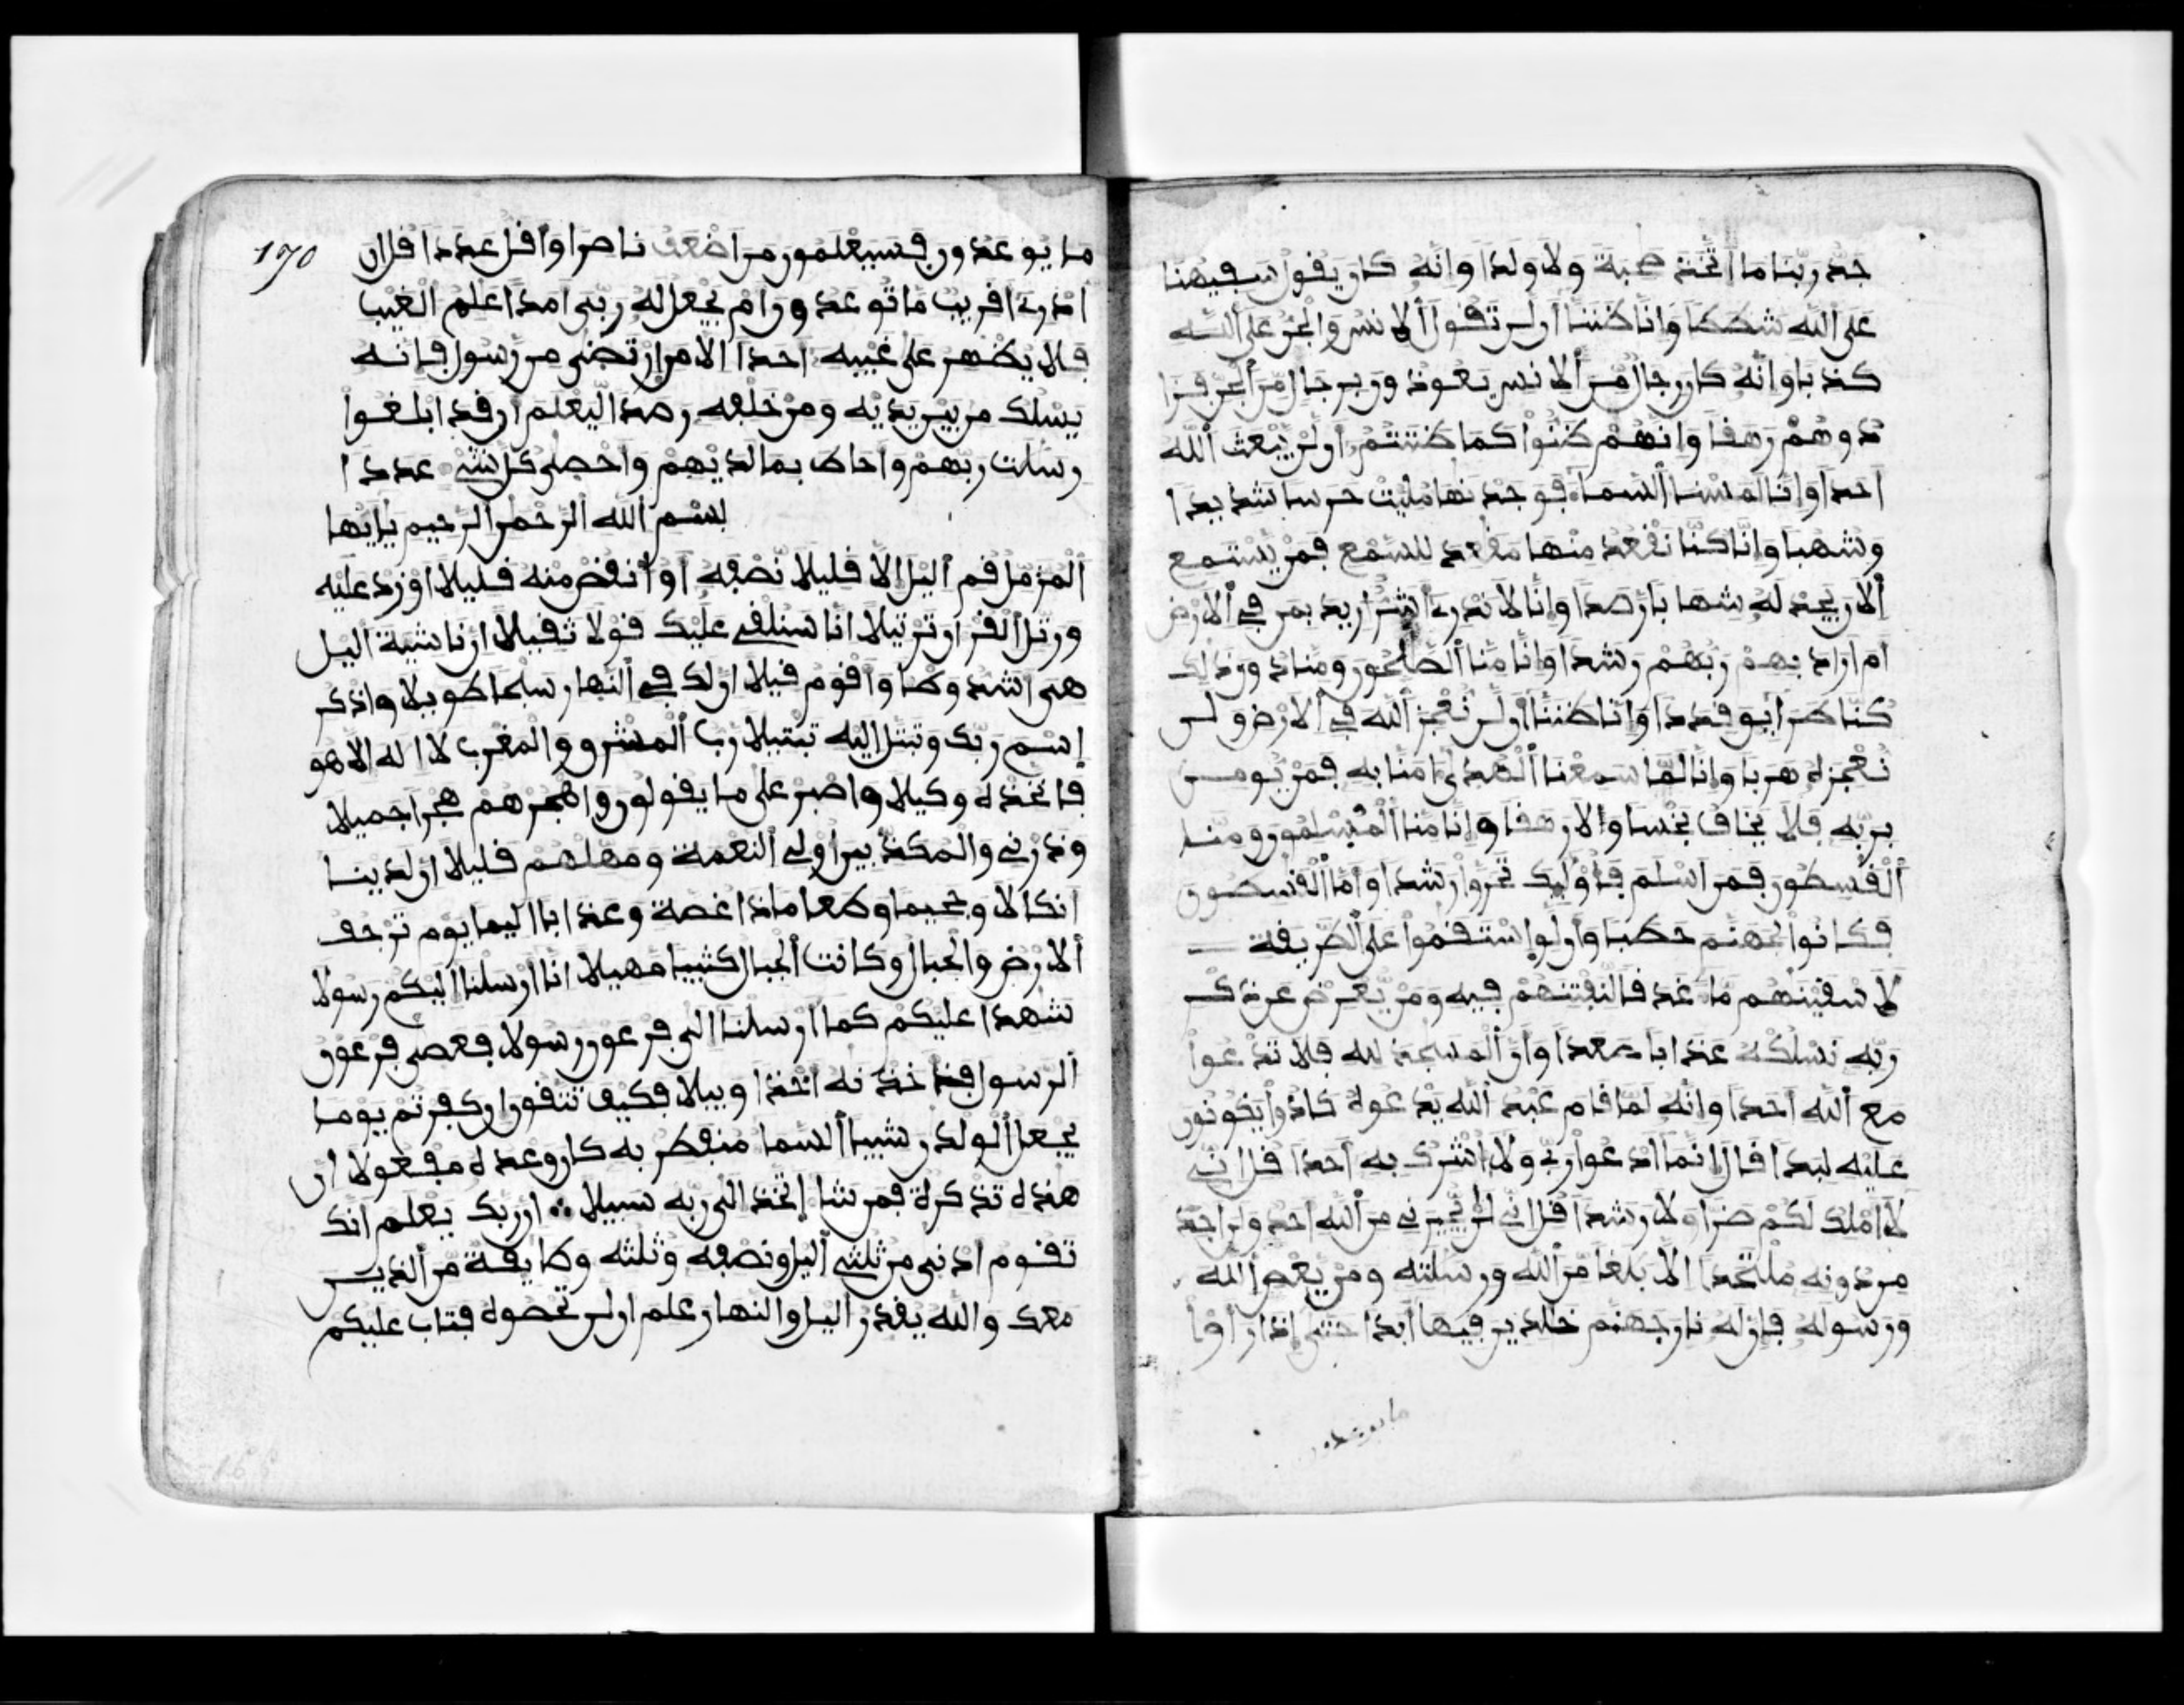 جد ربنا ما اتخذ صحبة ولا ولدا وانه كان يقول سفيهنا
على الله شططا وانا ظننا ان لن تقول الانس والجن على الله
كذبا وانه كان رجال من الانس يعوذون برجال من الجن فزا
دوهم رهقا وانهم ظنوا كما ظننتم ان لن يبعث الله
احدا وانا لمسنا السما فوجدنها مليت حرسا شديدا
وشهبا وانا كنا نقعد منها مقعد للسمع فمن يستمع
الان يجد له شهابا رصدا وانا لا ندرے اشر اريد بمن في الارض
ام اراد بهم ربهم رشدا وانا منا الصلحون ومنا دون ذلك
كنا طرايق قددا وانا ظننا ان لن نعجز الله في الارض ولن
نعجزه هربا وانا لما سمعنا الهدى امنا به فمن يومن
بربه فلا يخاف بخسا ولا رهقا وانا منا المسلمون ومنا
القسطون فمن اسلم فاوليك تحروا رشدا واما القسطون
فكانوا لجهنم حطبا وان لو استقموا على الطريقة
لا سقينهم ما غدقا لنفتنهم فيه ومن يعرض عن ذكر
ربه نسلكه عذابا صعدا وان المسجد لله فلا تدعوا
مع الله احدا وانه لما قام عبد الله يدعوه كادوا يكونون
عليه لبدا قال انما ادعوا ربي ولا اشرك به احدا قل اني
لا املك لكم ضرا ولا رشدا قل اني لن يجيرني من الله احد ولن اجد
من دونه ملتحدا الا بلغا من الله ورسلته ومن يعص الله
ورسوله فان له نار جهنم خلدين فيها ابدا حتى اذا راوا
ما يوعدون
170
ما يوعدون فسيعلمون من اضعف ناصرا واقل عددا قل ان
ادرے اقريب ما توعدون ام يجعل له ربي امدا علم الغيب
فلا يظهر على غيبه احدا الا من ارتضى من رسول فانه
يسلك من بين يديه ومن خلفه رصدا ليعلم ان قد ابلغوا
رسلت ربهم واحاط بما لديهم واحصى كل شے عددا
بسم الله الرحمن الرحيم يايها
المزمل قم اليل الا قليلا نصفه او انقص منه قليلا او زد عليه
ورتل القران ترتيلا انا سنلقے عليك قولا ثقيلا ان ناشية اليل
هي اشد وطا واقوم قيلا ان لك في النهار سبحا طويلا واذكر
اسم ربك وتبتل اليه تبتيلا رب المشرق والمغرب لا اله الا هو
فاتخذه وكيلا واصبر على ما يقولون واهجرهم هجرا جميلا
وذرنے والمكذبين اولے النعمة ومهلهم قليلا ان لدينا
انكالا وجحيما وطعاما ذا غصة وعذابا اليما يوم ترجف
الارض والجبال وكانت الجبال كثيبا مهيلا انا ارسلنا اليكم رسولا
شهدا عليكم كما ارسلنا الى فرعون رسولا فعصى فرعون
الرسول فاخذنه اخذا وبيلا فكيف تتقون ان كفرتم يوما
يجعل الولدن شيبا السما منفطر به كان وعده مفعولا ان
هذه تذكرة فمن شا اتخذ الى ربه سبيلا ؞ ان ربك يعلم انك
تقوم ادنى من ثلثے اليل ونصفه وثلثه وطايفة من الذين
معك والله يقدر اليل والنهار علم ان لن تحصوه فتاب عليكم